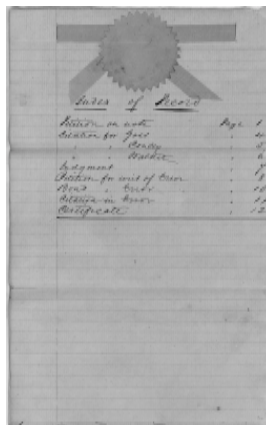 Index of Record
Petition on note Page 1
Citation for Goss " 4
" " " 5
" " " 6
Judgment " 7
Petition for writ of Error " 8
Bond " Error " 10
Citation in Error " 11
Certificate " 12